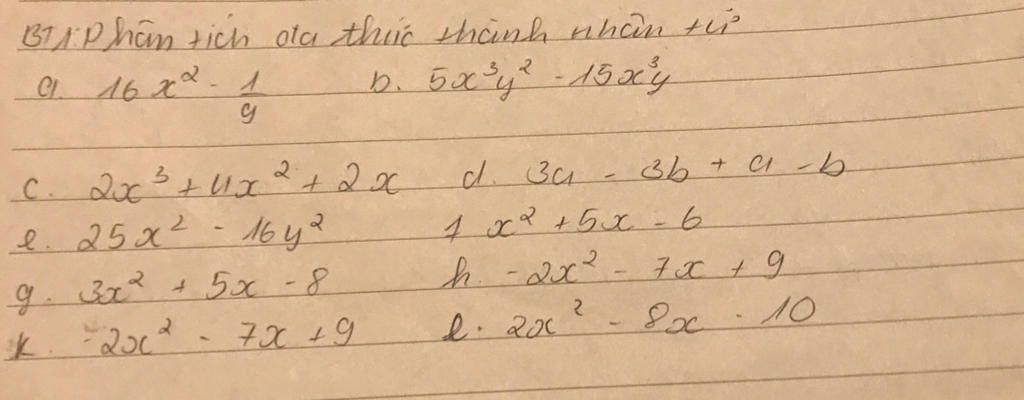 BT1: Phân tích đa thức thành nhân tử
a. 16x² - 1/9 b. 5x³y² - 15x³y
c. 2x³ + 4x² + 2x d. 3a - 3b + a - b
e. 25x² - 16y² f x² + 5x - 6
g. 3x² + 5x - 8 h. -2x² - 7x + 9
k. -2x² - 7x + 9 l. 2x² - 8x - 10